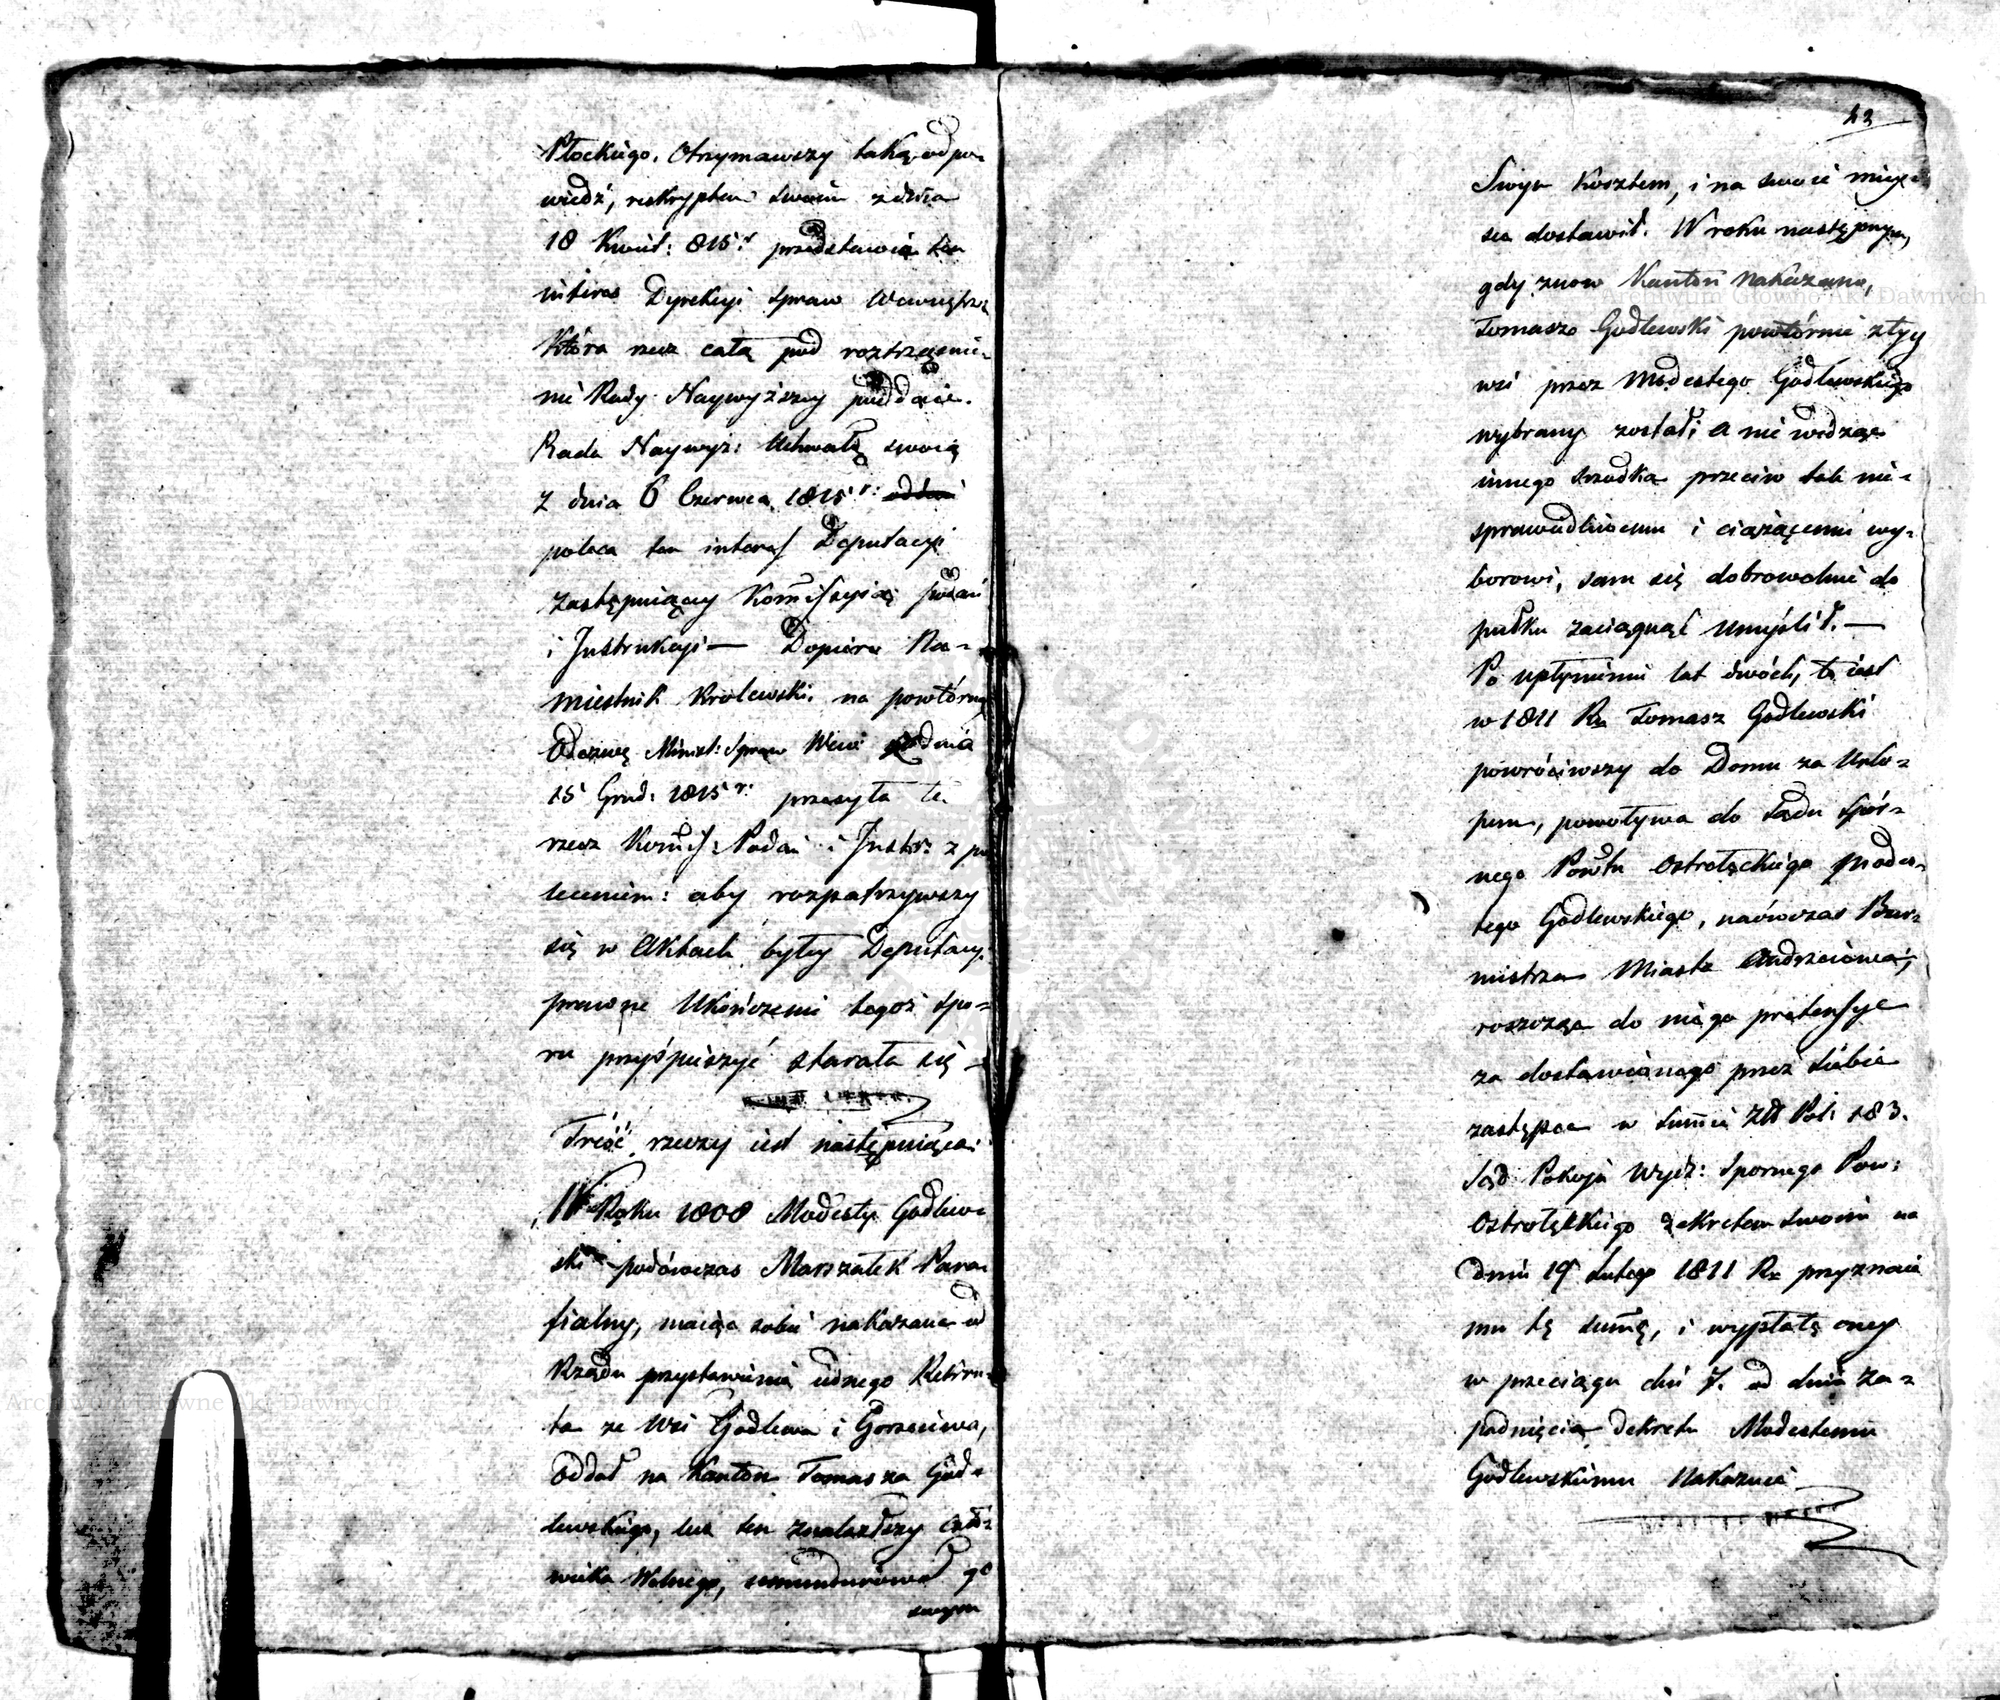 Płockiego. Otrzymawszy taką odpo-
wiedź, reskryptem swoim z dnia
18 Kwiet: 815 r. przedstawia ten
interes Dyrekcyi Spraw Wewnętrz:
Która rzecz całą pod roztrząśnie-
nie Rady Naywyższey poddaie.
Rada Naywyż: Uchwałą swoią
z dnia 6 Czerwca 1815 r:
poleca ten interes Deputacyi
zastępuiącey Kommissyią Podań
i Instrukcyi — Dopiero Na-
miestnik Krolewski, na powtórną
Odezwę Minist: Spraw Wew: z dnia
15 Grud: 1815 r: przesyła tę
rzecz Kommis: Podań i Instr: z po
leceniem: aby rozpatrzywszy
się w Aktach byłey Deputacyi
prawne Ukończenie tegoż spo-
ru przyśpieszyć starała się —
Treść rzeczy iest następuiąca:
W Roku 1808 Modesty Godlew-
ski podówczas Marszałek Para-
fialny, maiąc sobie nakazane od
Rządu przystawienie iednego Rekru-
ta ze Wsi Godlewa i Gorzeiwa,
Oddał na Kanton Tomasza God-
lewskiego, lecz ten znalazłszy czło-
wieka Wolnego, zamundurował go
swym
42
Swym Kosztem, i na swoie miey-
sce dostawił. W roku następnym,
gdy znow Kanton nakazano,
Tomasz Godlewski powtórnie z tey
wsi przez Modestego Godlewskiego
wybrany został; a nie widząc
innego srzodka przeciw tak nie-
sprawiedliwemu i ciążącemu wy-
borowi, sam się dobrowolnie do
pułku zaciągnąć umyślił. —
Po upłynieniu lat dwóch, to iest
w 1811 Rr Tomasz Godlewski
powróciwszy do Domu za Urlo-
pem, powoływa do Sadu Spor-
nego Powtu Ostrołęckiego Modes-
tego Godlewskiego, naówczas Bur-
mistrza Miasta Andrzeiowa,
roszcząc do niego pretensye
za dostawionego przez siebie
zastępce w Summie Złł Pol: 183.
Sąd Pokoju Wydz: Spornego Pow:
Ostrołęckiego dekretem swoim na
dniu 19 Lutego 1811 Rr przyznaie
mu tę summę, i wypłatę oney
w przeciągu dni 7. od dnia Za-
padnięcia dekretu Modestemu
Godlewskiemu nakazuie
Archiwum Główne Akt Dawnych
Archiwum Główne Akt Dawnych